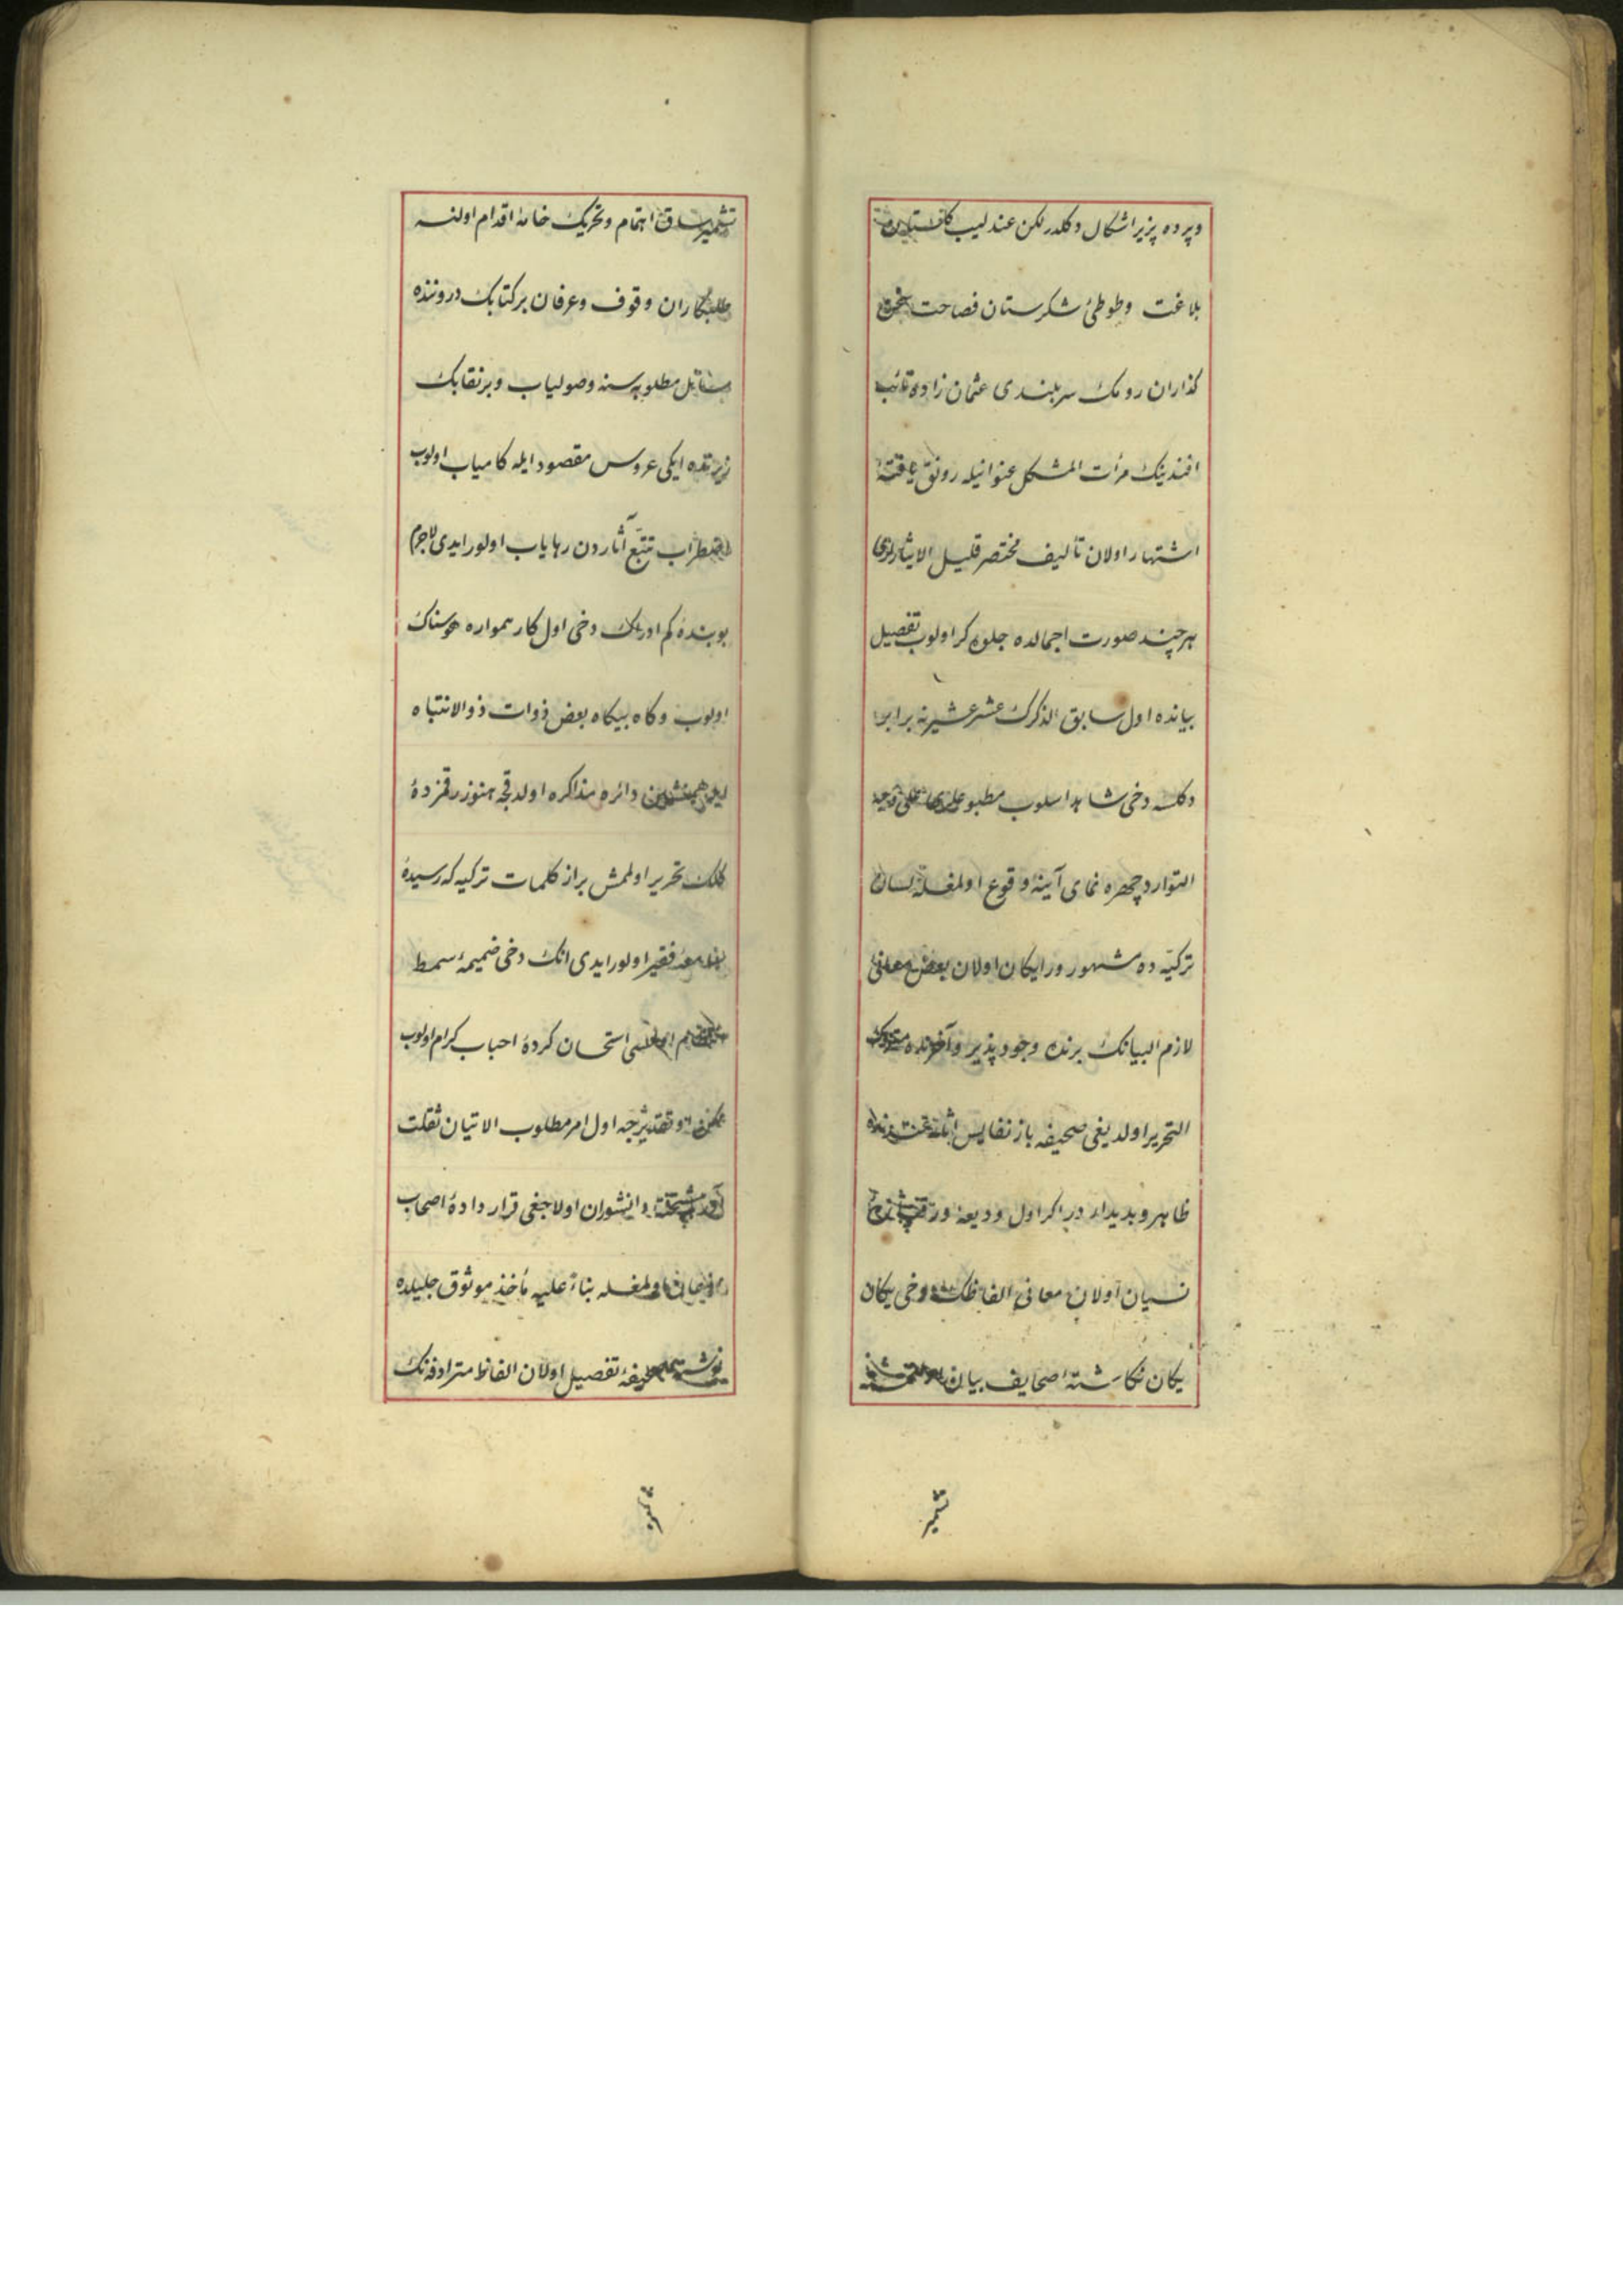 وپرده پزیر اشکال دکلدر لکن عندلیب
بلاغت وطوطئ شکرستان فصاحت
کذاران رومک سربلندی عثمان زاده تائب
افندینک مرأت المشکل عنوانیله رونق یافتۀ
اشتهار اولان تألیف مختصر قلیل
هرچند صورت اجمالده جلوه کر اولوب تفصیل
بیانده اول سابق الذکرک عشر عشیرنه برابر
دکلسه دخی شاهد اسلوب مطبوعلری علی طریق
التوارد چهره نمای آیینۀ وقوع اولمغله لسان
ترکیده مشهور ورایکان اولان بعض معانئ
لازم البیانک برنده وجود پذیر وآخرنده متروک
التحریر اولدیغی صحیفه باز نفایس
ظاهر وبدیدار در اکر اول ودیعۀ
نسیان اولان معانئ الفاظک دخی یکان
یکان نکاشتۀ صحایف بیان
تشمیر
تشمیر ساق اهتمام وتحریک خامۀ اقدام اولنسه
طلبکاران وقوف وعرفان برکتابک دروننده
مطلوبه سنه وصولیاب وبرنقابک
زیرنده ایکی عروس مقصود ایله کامیاب اولوب
اضطراب تتبع آثاردن رهایاب اولور ایدی لاجرم
بوبندۀ کم ادراک دخی اول کار همواره هوسناک
اولوب وکاه بیکاه بعض ذوات ذو الانتباه
ایله همنشین دائره مذاکره اولدقجه هنوز رقمزدۀ
کلک تحریر اولمش براز کلمات ترکیه که رسیدۀ
فقیر اولور ایدی انک دخی ضمیمۀ سمط
استحسان کردۀ احباب کرام اولوب
اول امر مطلوب الاتیان ثقلت
دانشوران اولاجغی قرار دادۀ اصحاب
اولمغله بناءً علیه مأخذ موثوق جلیلده
تفصیل اولان الفاظ مترادفه نک